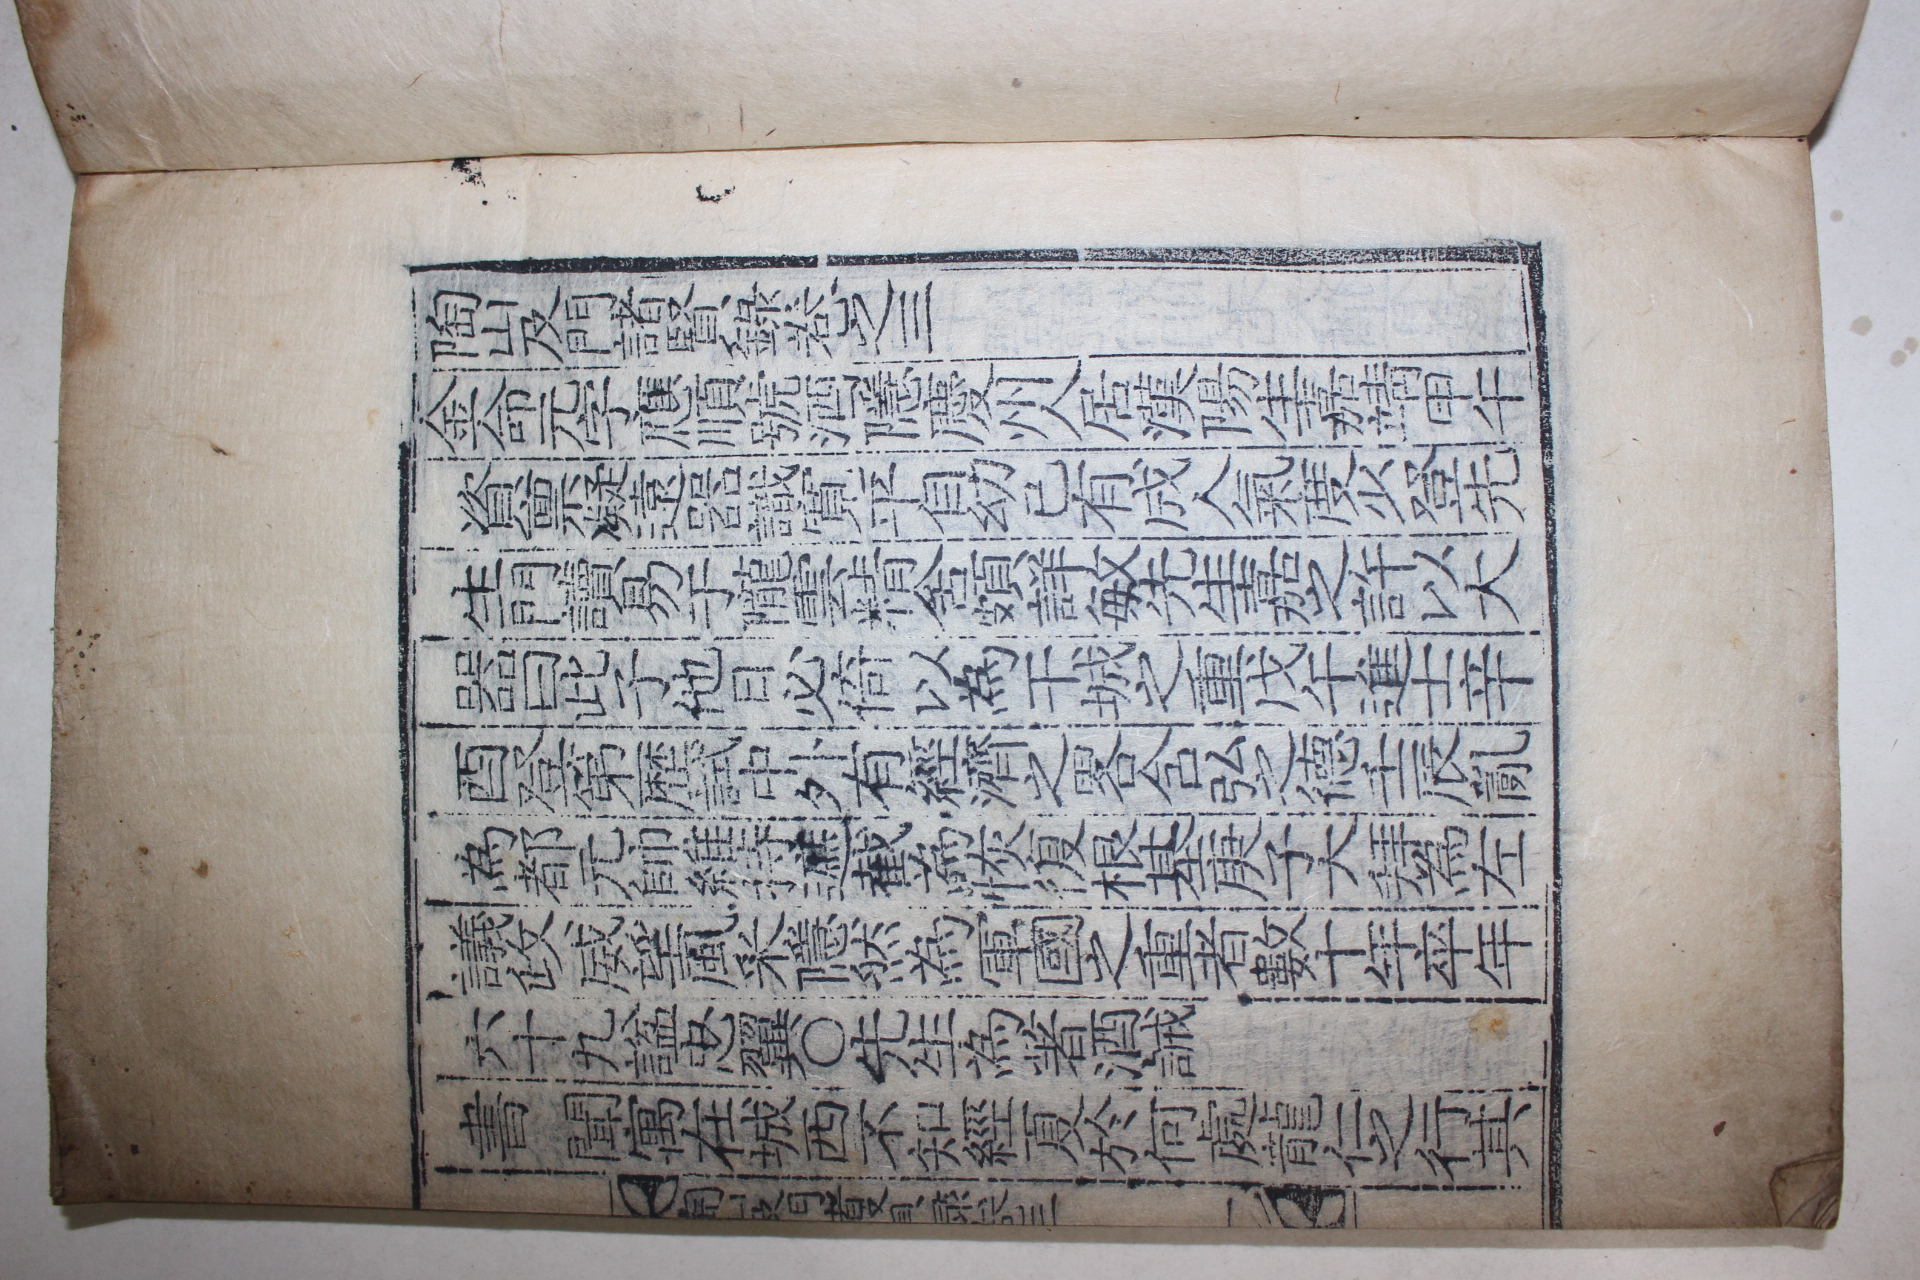 陶山及門諸賢錄卷之三
金命元字應順號酒隱慶州人居漢陽生嘉靖甲午
資稟凝遠器識寬平自幼已有成人氣度少登先
生門讀易于隴雲精舍頗詳敏先生嘉之許以大
器曰此子他日必倚以為干城之重戊午進士辛
酉登第歷試中外有經濟之畧含弘之德壬辰亂
為都元帥維持遮截為恢復根基庚子大拜為左
議政威望風采隱然為軍國之重者數十年卒年
六十九諡忠翼〇先生為著酒誡
書 聞寓在城西不知經夏於何處龍仁之行其
陶山及門諸賢錄卷三 一